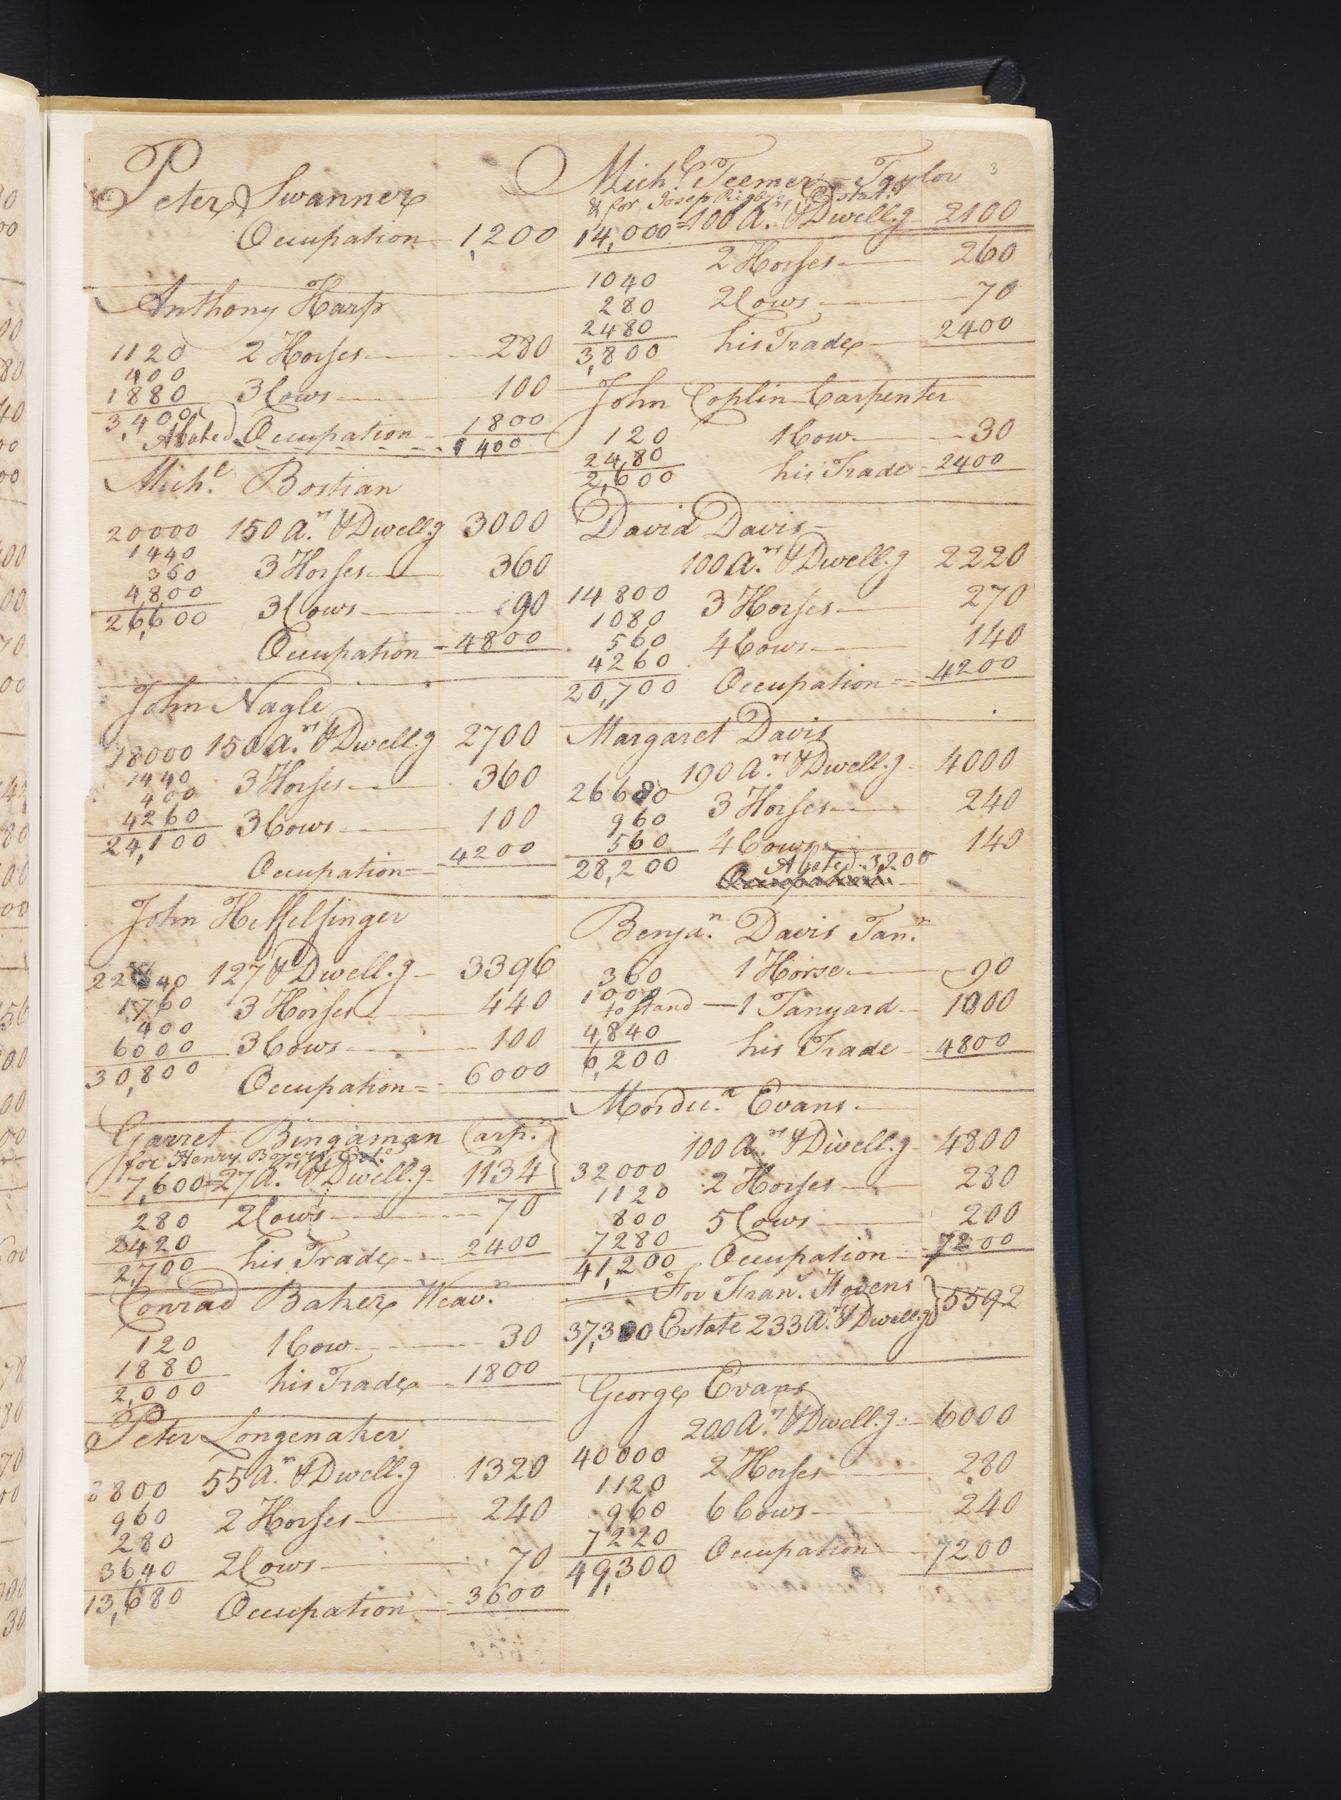 Peter Swanner
Occupation 1,200
Anthony Harp
1120 2 Horses 280
400
1880 3 Cows 100
3,400
Abated Occupation 1800
1400
Mich.l Bostian
20000 150 a.rs & Dwell.g 3000
1440
360 3 Horses 360
4800
26,600 3 Cows 90
Occupation 4800
John Nagle
18000 150 a.rs & Dwell.g 2700
1440
400 3 Horses 360
4260
24,100 3 Cows 100
Occupation 4200
John
22640 127 & Dwell.g 3396
1760 3 Horses 440
400
6000 3 Cows 100
30,800 Occupation 6000
Garret Bingaman Carp.r
for Henry Boyers Est.e
7,600 = 27 a.rs & Dwell.g 1134
280 2 Cows 70
2420 his Trade 2400
2,700
Conrad Baker Weav.r
120 1 Cow 30
1880
2,000 his Trade 1800
Peter Longenaker
8800 55 a.rs & Dwell.g 1320
960 2 Horses 240
280
3640 2 Cows 70
13,680 Occupation 3600
3
Mich.l Teemer Taylor
& for Joseph Rigby's Estate
14,000 = 100 a.rs & Dwell.g 2100
1040 2 Horses 260
280 2 Cows 70
2480 his Trade 2400
3,800
John Coplin Carpenter
120 1 Cow 30
2480 his Trade 2400
2,600
David Davis
100 a.rs & Dwell.g 2220
14800 3 Horses 270
1080
560 4 Cows 140
4260
20,700 Occupation 4200
Margaret Davis
190 a.rs & Dwell.g 4000
26680 3 Horses 240
960
560 4 Cows 140
28,200 Abated 3,200
Occupation
Benja.n Davis Tan.r
360 1 Horse 90
1000 to stand 1 Tanyard 1000
4,840 his Trade 4800
6,200
Mordic.a Evans
100 a.rs & Dwell.g 4800
32000
1120 2 Horses 280
800 5 Cows 200
7280 Occupation 7200
41,200
For Fran.s Hovens
37,300 Estate 233 a.rs & Dwell.g 5592
George Evans
200 a.rs & Dwell.g 6000
40000
1120 2 Horses 280
960 6 Cows 240
7220 Occupation 7200
49,300